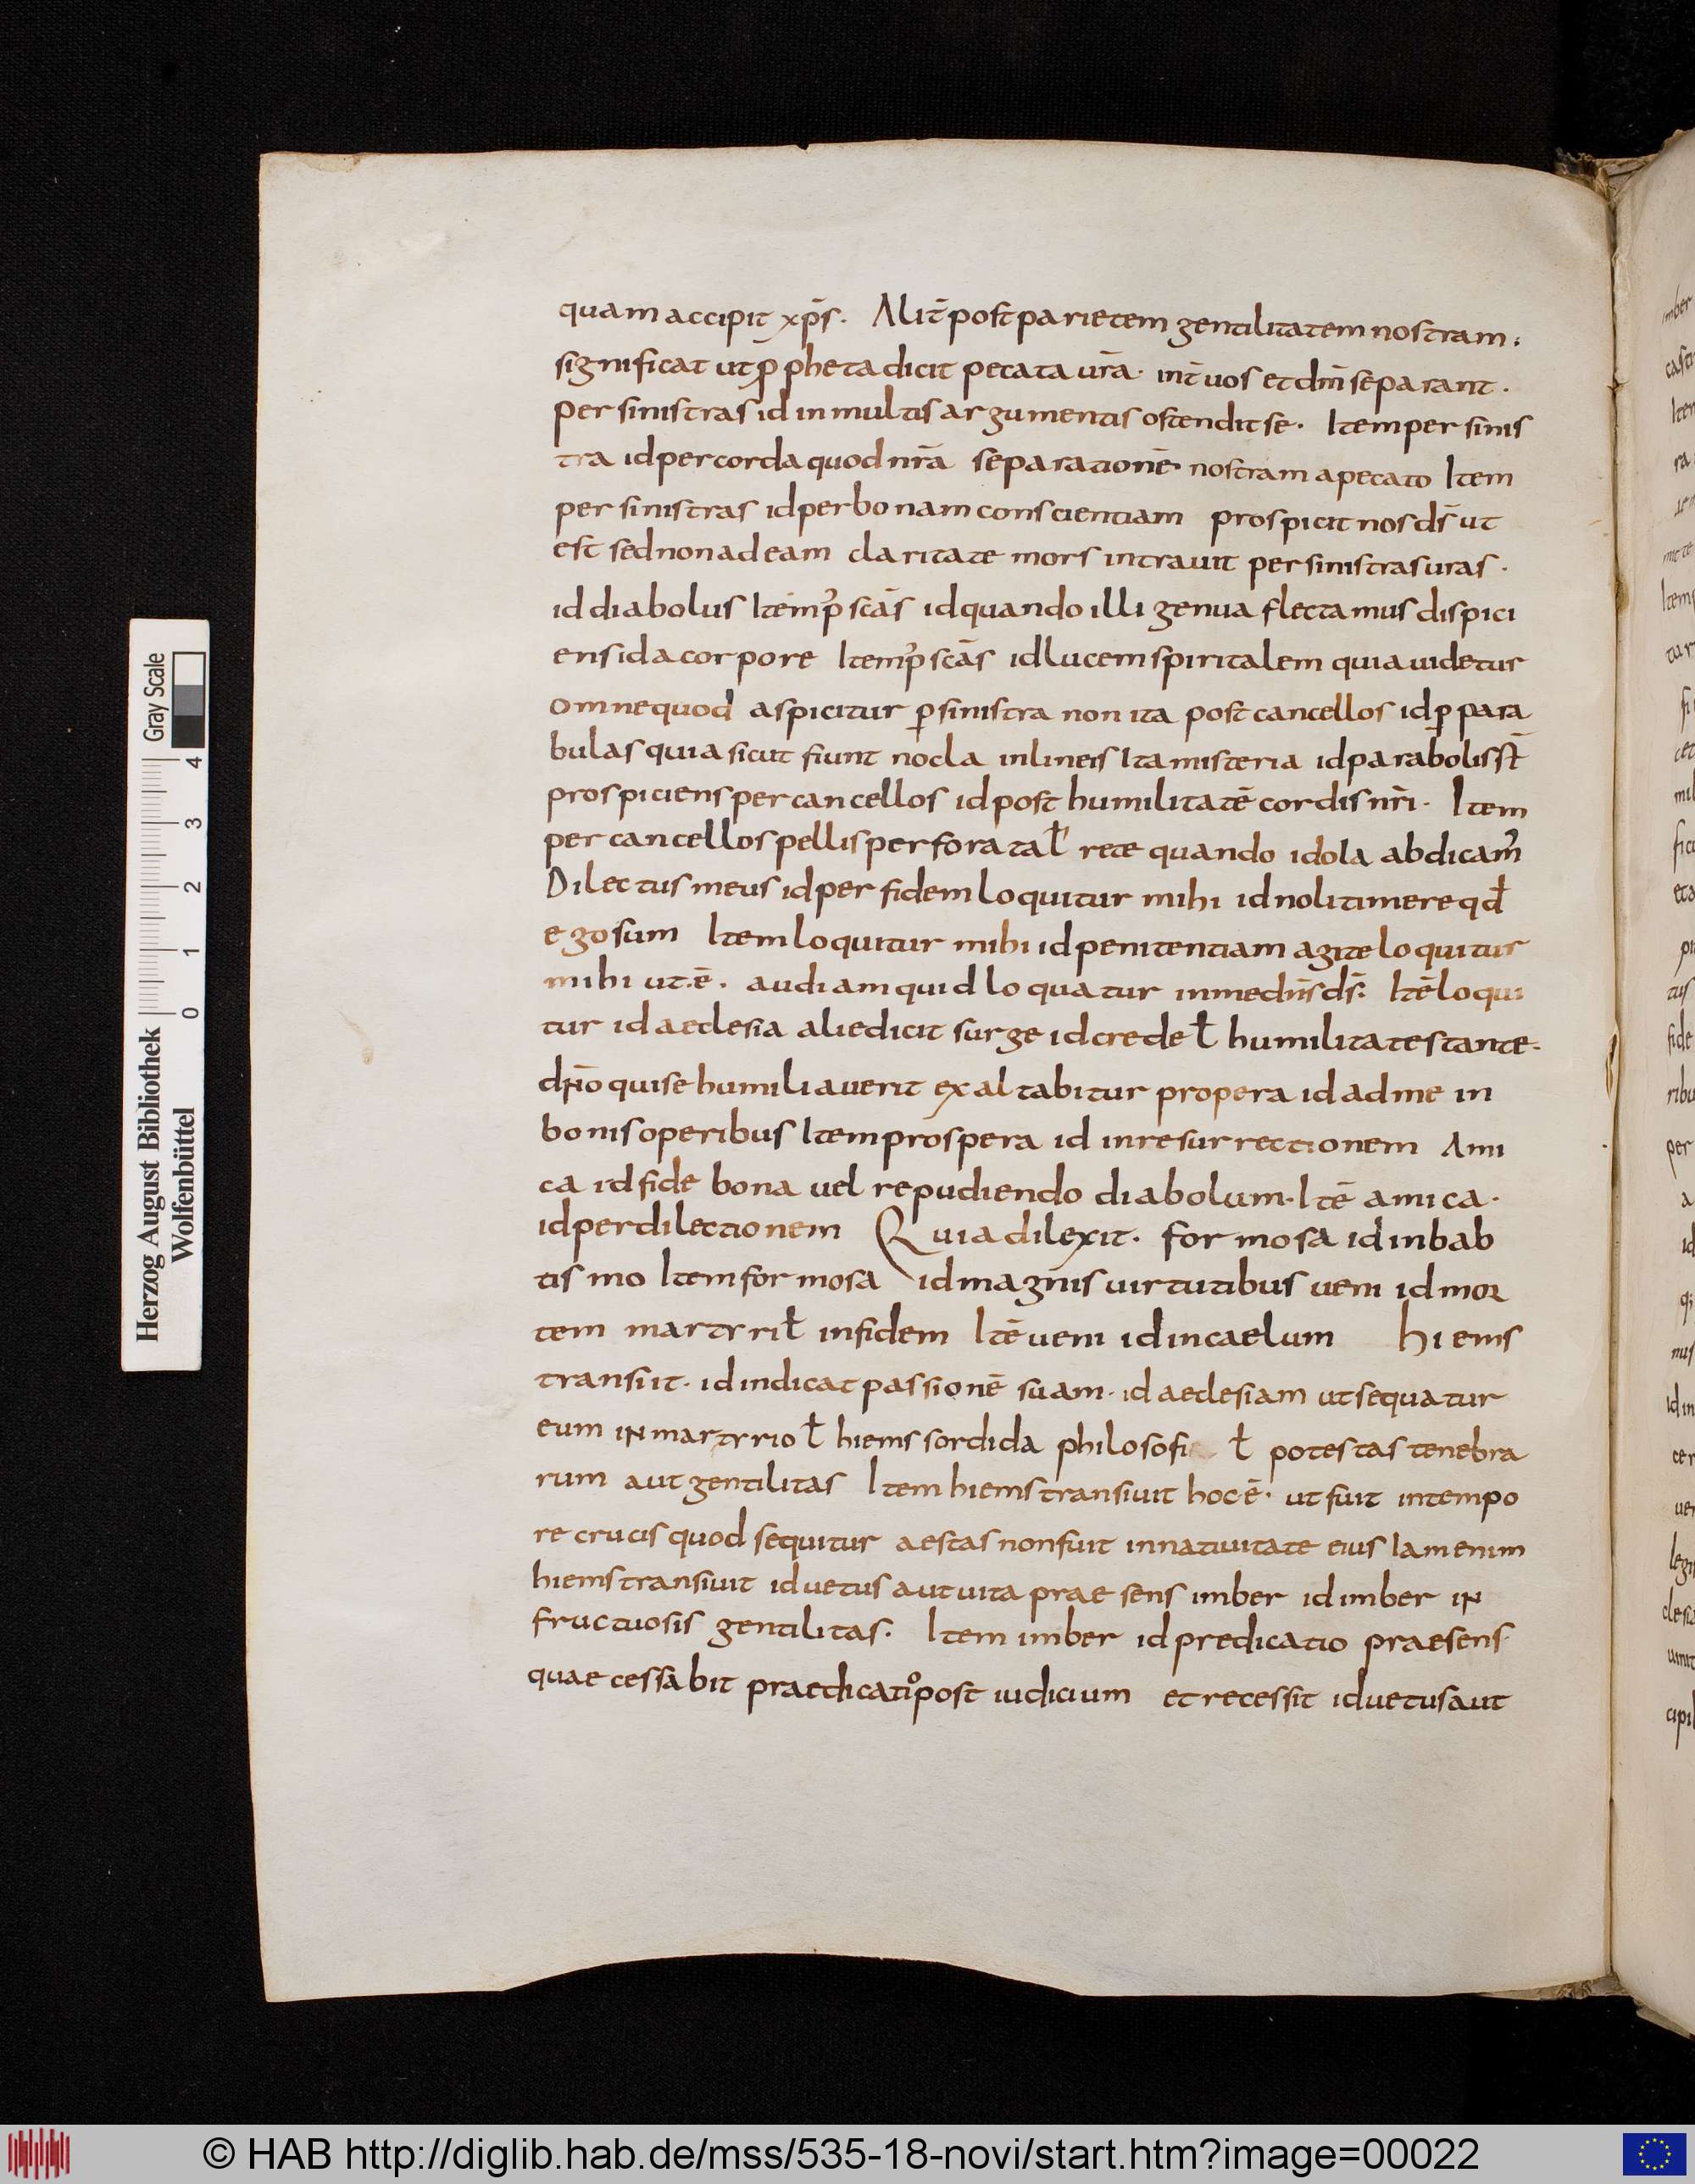 quam accipit xp̄s. Alit̄ post parietem gentilitatem nostram;
significat ut ꝓpheta dicit pecata ur̄a. int̄ uos et dm̄ separant.
per sinistras id in multis argumentis ostendit se. Item per sinis
tra id per corda quod nr̄a separationē nostram a pecato Item
per sinistras id per bonam conscientiam prospicit nos ds̄ ut
est sed non ad eam claritate mors intrauit per sinistras uras.
id diabolus Item p᷒ scās id quando illi genua flectamus dispici
ens id a corpore Item p᷒ scās id lucem spiritalem quia uidetur
omne quod aspicitur ꝑ sinistra non ita post cancellos id ꝑ para
bulas quia sicut fiunt nocla in lineis Ita misteria id parabolis st̄
prospiciens per cancellos id post humilitatē cordis nr̄i. Item
per cancellos pellis perforata ł rete quando idola abdicam᷒
Dilectus meus id per fidem loquitur mihi id noli timere qd̄
ego sum Item loquitur mihi id penitentiam agite loquitur
mihi ut.ē. audiam quid loquatur in me dn̄s ds̄. Itē loqui
tur id aeclesia alie dicit surge id crede ł humilitate stante.
dn̄o qui se humiliauerit exaltabitur propera id ad me in
bonis operibus Item prospera id in resurrectionem Ami
ca id fide bona uel repudiendo diabolum. Itē amica.
id per dilectionem Quia dilexit. formosa id in bab
tismo Item formosa id magnis uirtutibus ueni id mor
tem martyri ł in fidem Itē ueni id in caelum hiems
transiit. id indicat passionē suam. id aeclesiam ut sequatur
eum in martyrio ł hiems sordida philosofi ł potestas tenebra
rum aut gentilitas Item hiems transiuit hoc ē. ut fuit in tempo
re crucis quod sequitur aestas non fuit in natiuitate eius Iam enim
hiems transiuit id uetus aut uita praesens imber id imber in
fructuosis gentilitas. Item imber id predicatio praesens
quae cessabit praedicatio post iudicium et recessit id uetus aut
Herzog August Bibliothek
Wolfenbüttel
Gray Scale
0 1 2 3 4
© HAB http://diglib.hab.de/mss/535-18-novi/start.htm?image=00022